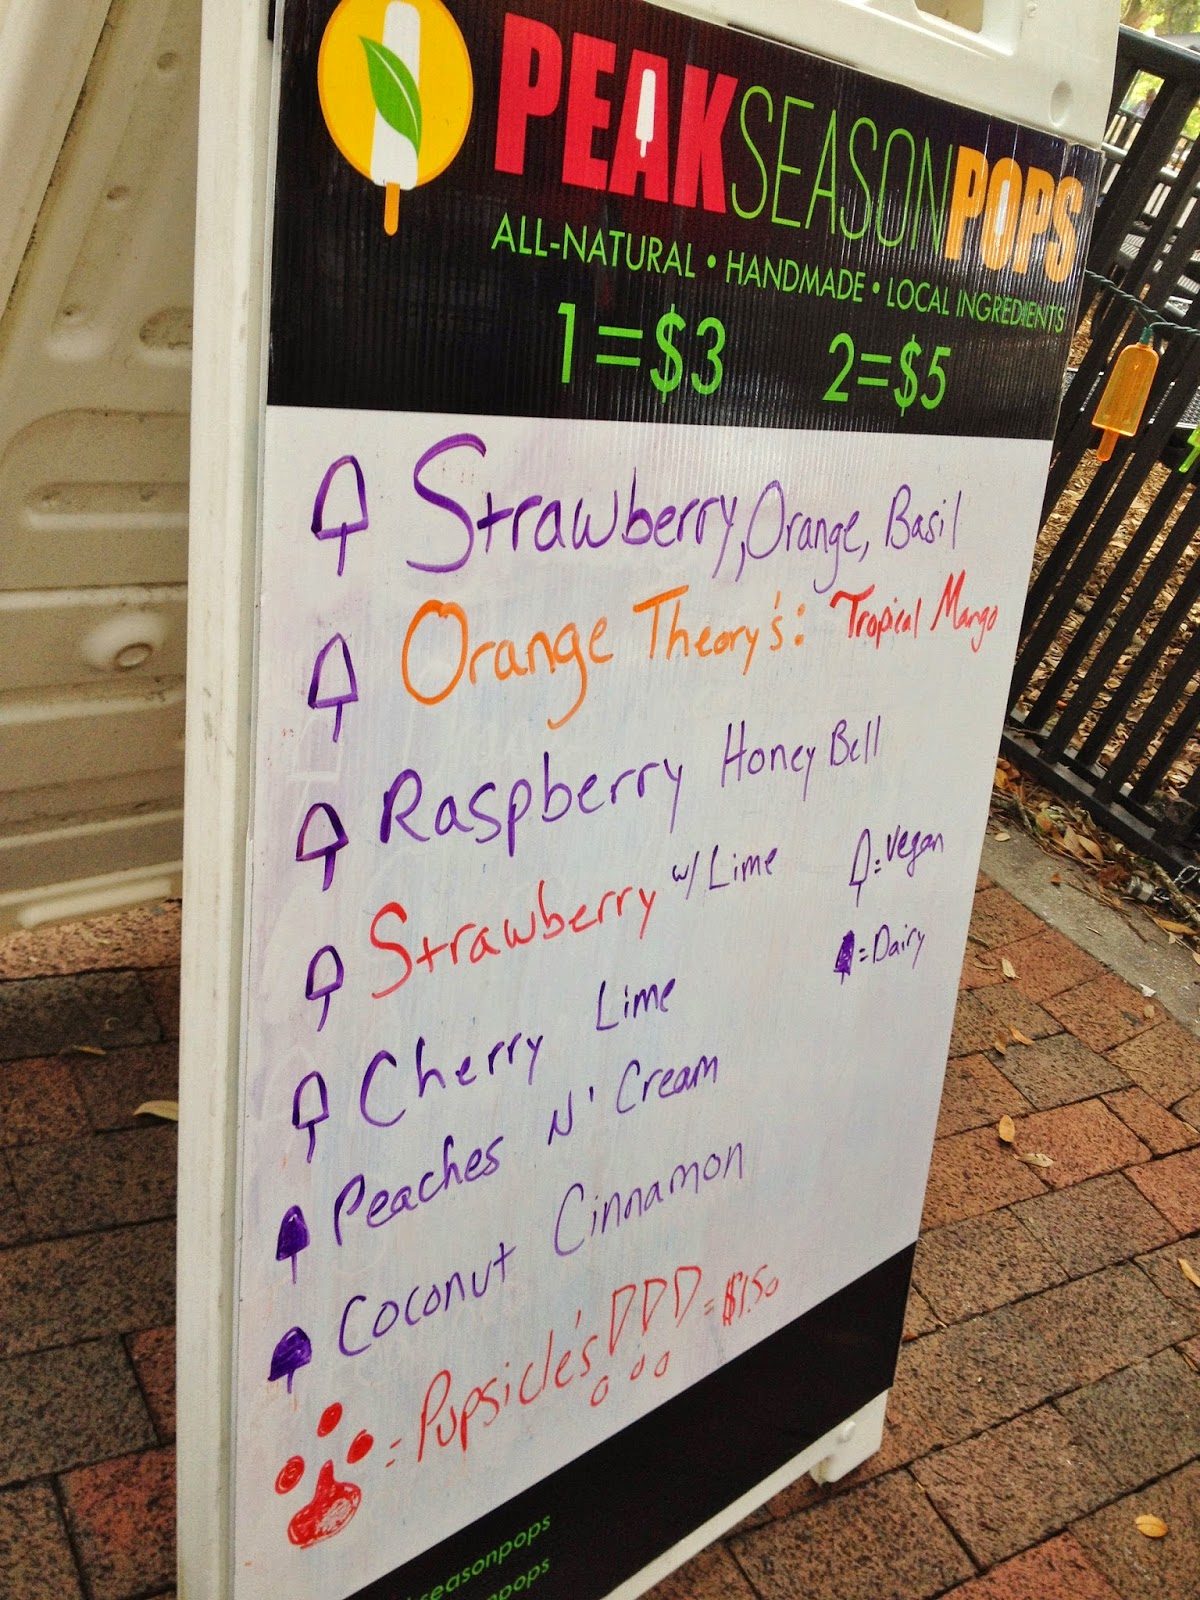 PEAKSEASONPOPS
ALL-NATURAL • HANDMADE • LOCAL INGREDIENTS
1=$3 2=$5
Strawberry, Orange, Basil
Orange Theory's: Tropical Mango
Raspberry Honey Bell
Strawberry w/ Lime
=Vegan
Cherry Lime
=Dairy
Peaches N' Cream
Coconut Cinnamon
= Pupsicle's!!! = $1.50
seasonpops
npops